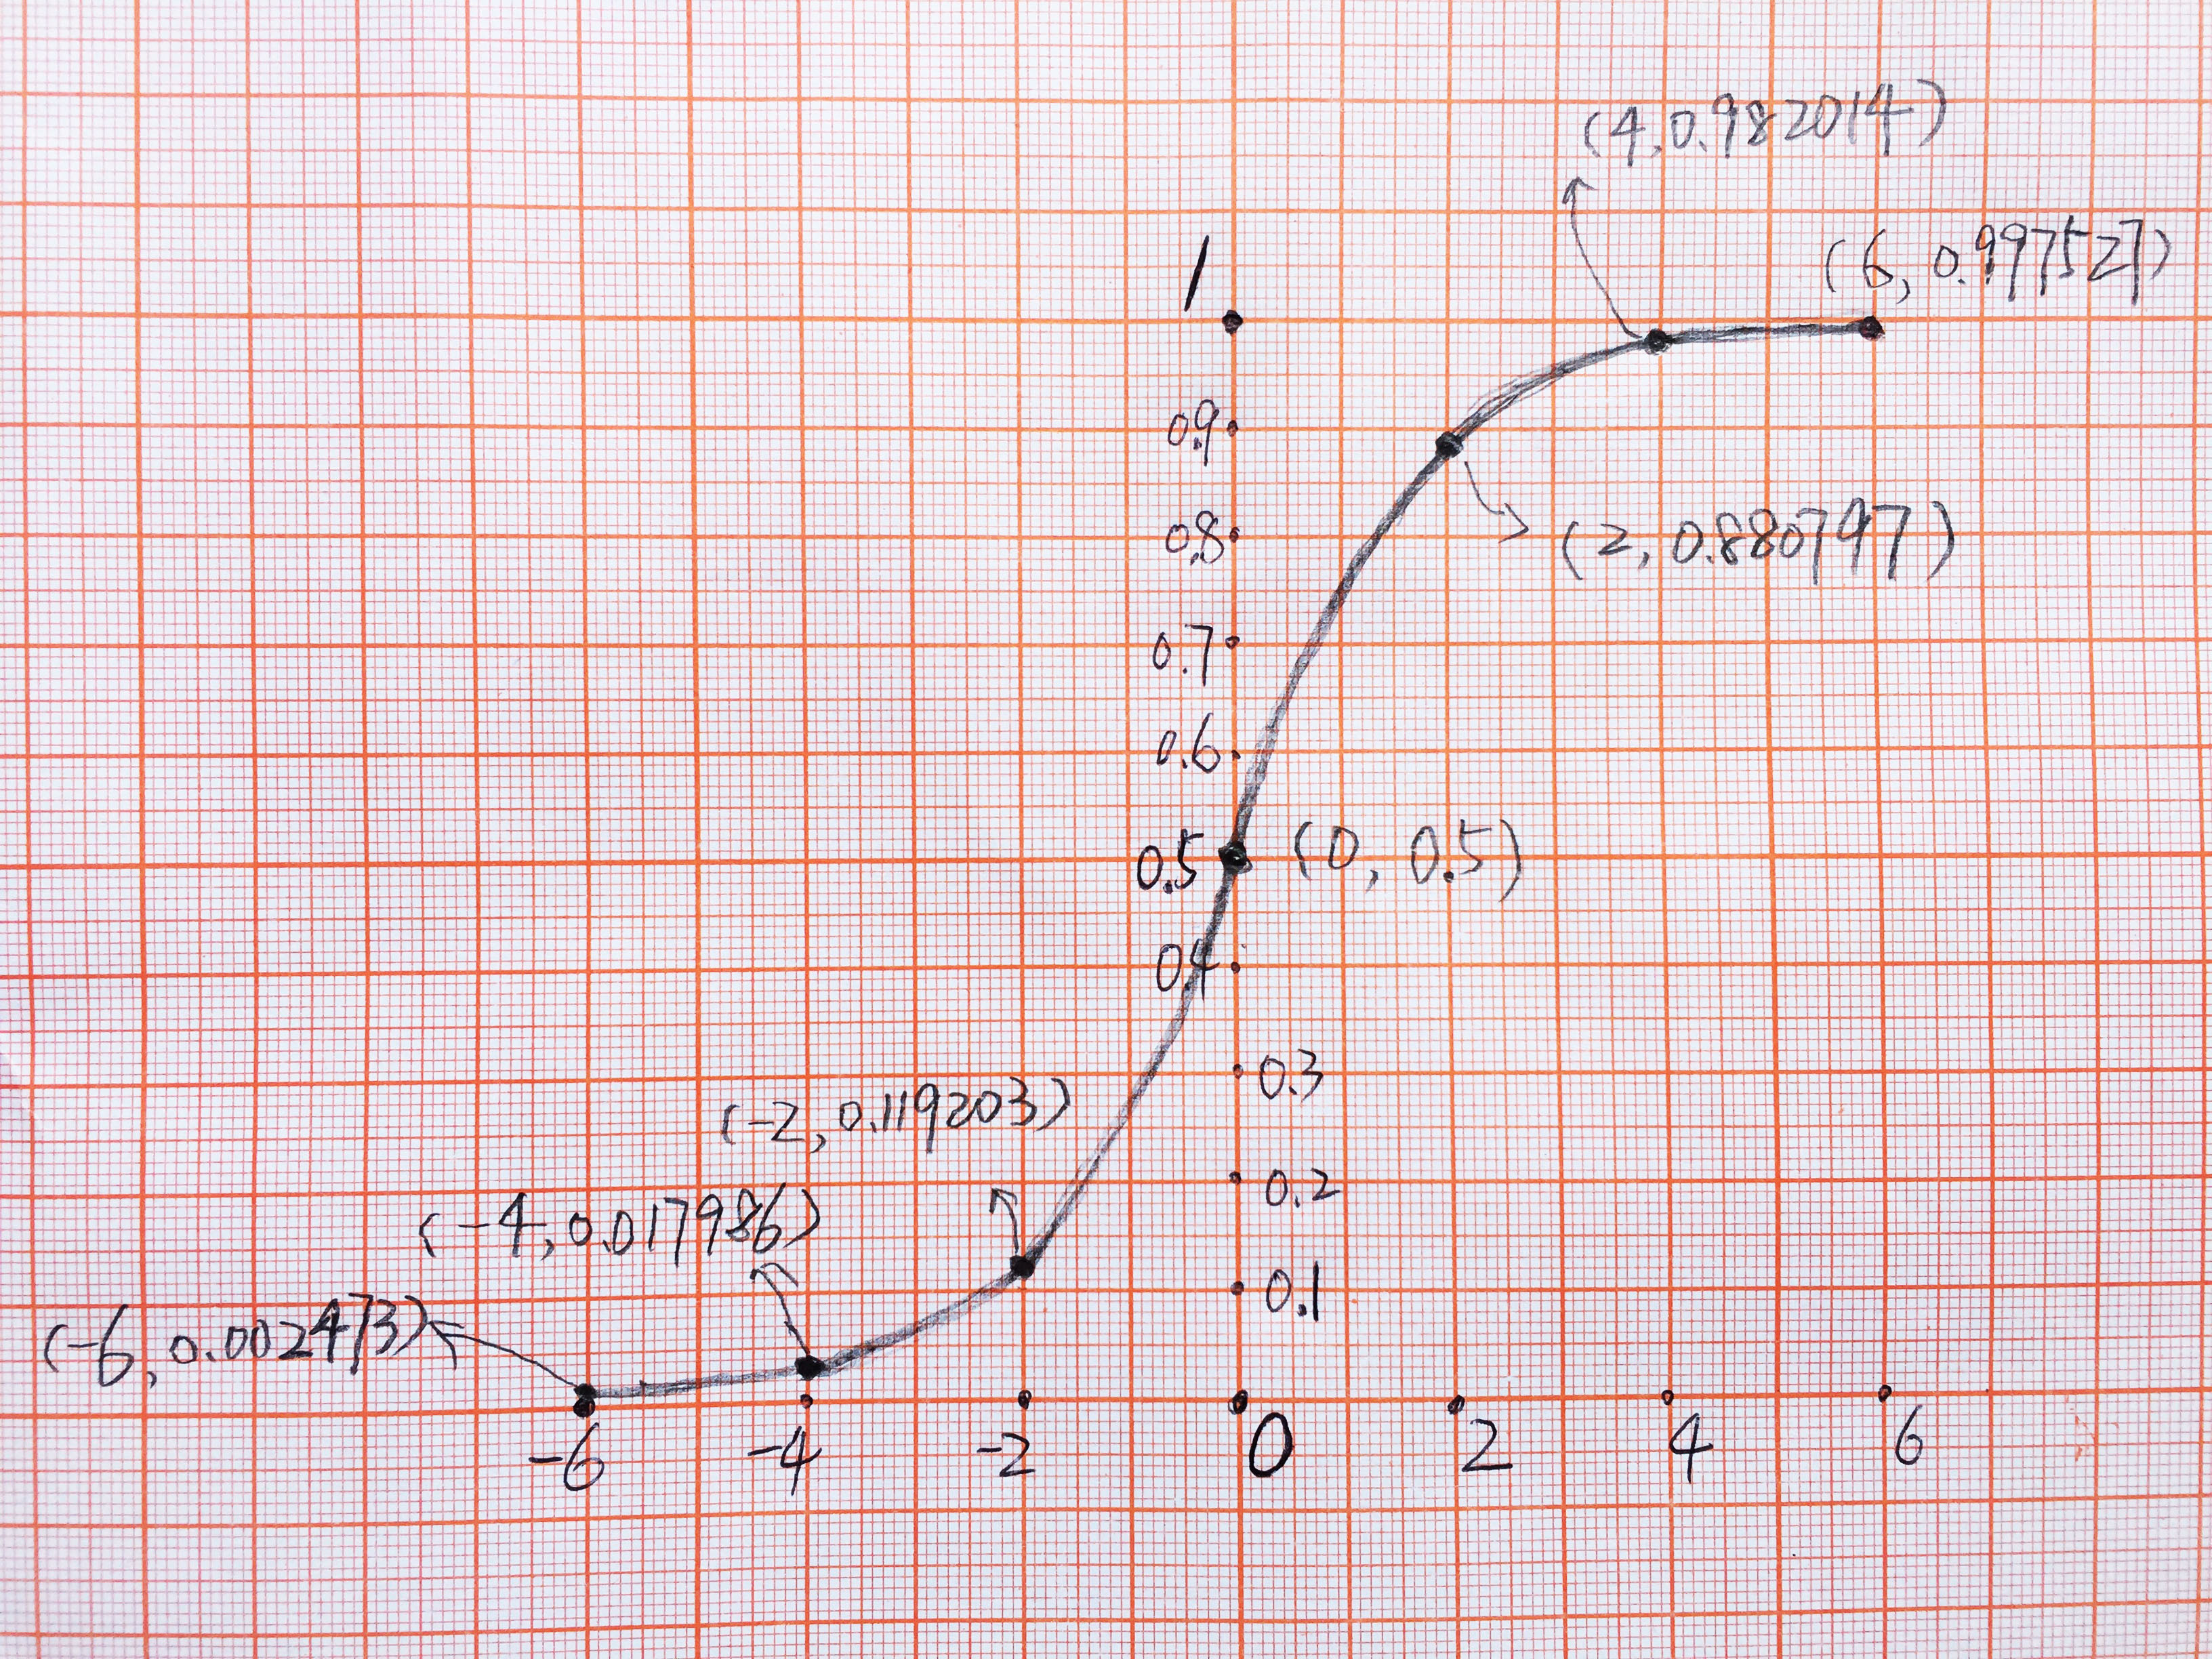 (4,0.982014)
(6,0.997527)
1
0.9
0.8
(2,0.880797)
0.7
0.6
0.5
(0,0.5)
0.4
0.3
(-2,0.119203)
0.2
(-4,0.017986)
0.1
(-6,0.002473)
-6 -4 -2 0 2 4 6